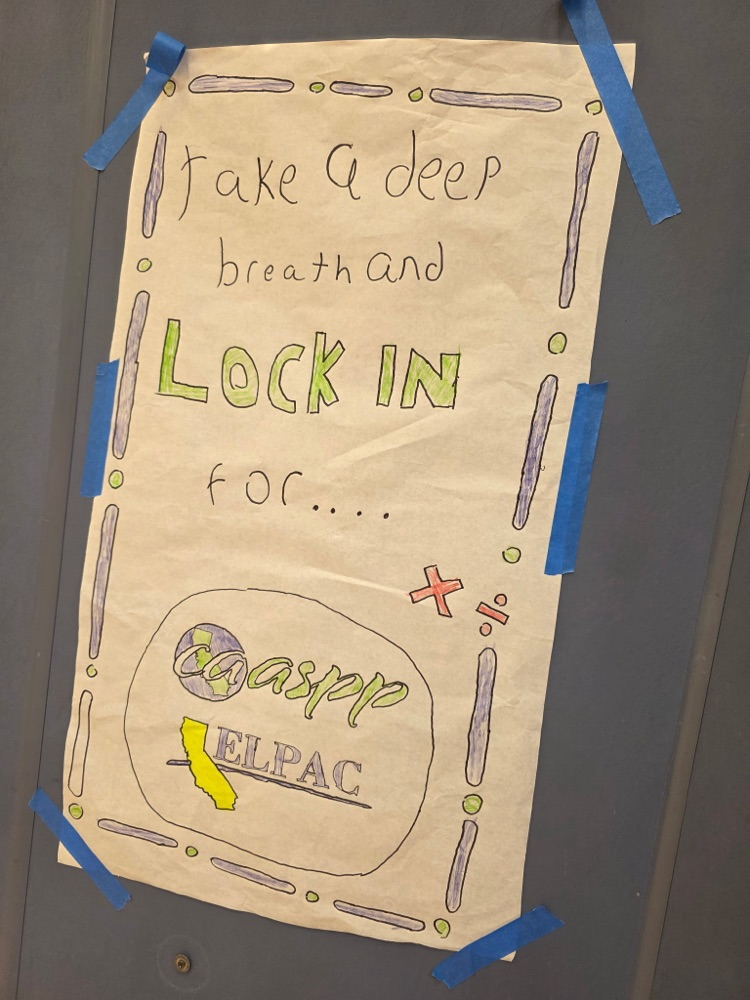 Take a deep
breath and
LOCK IN
for....
× ÷
caaspp
ELPAC